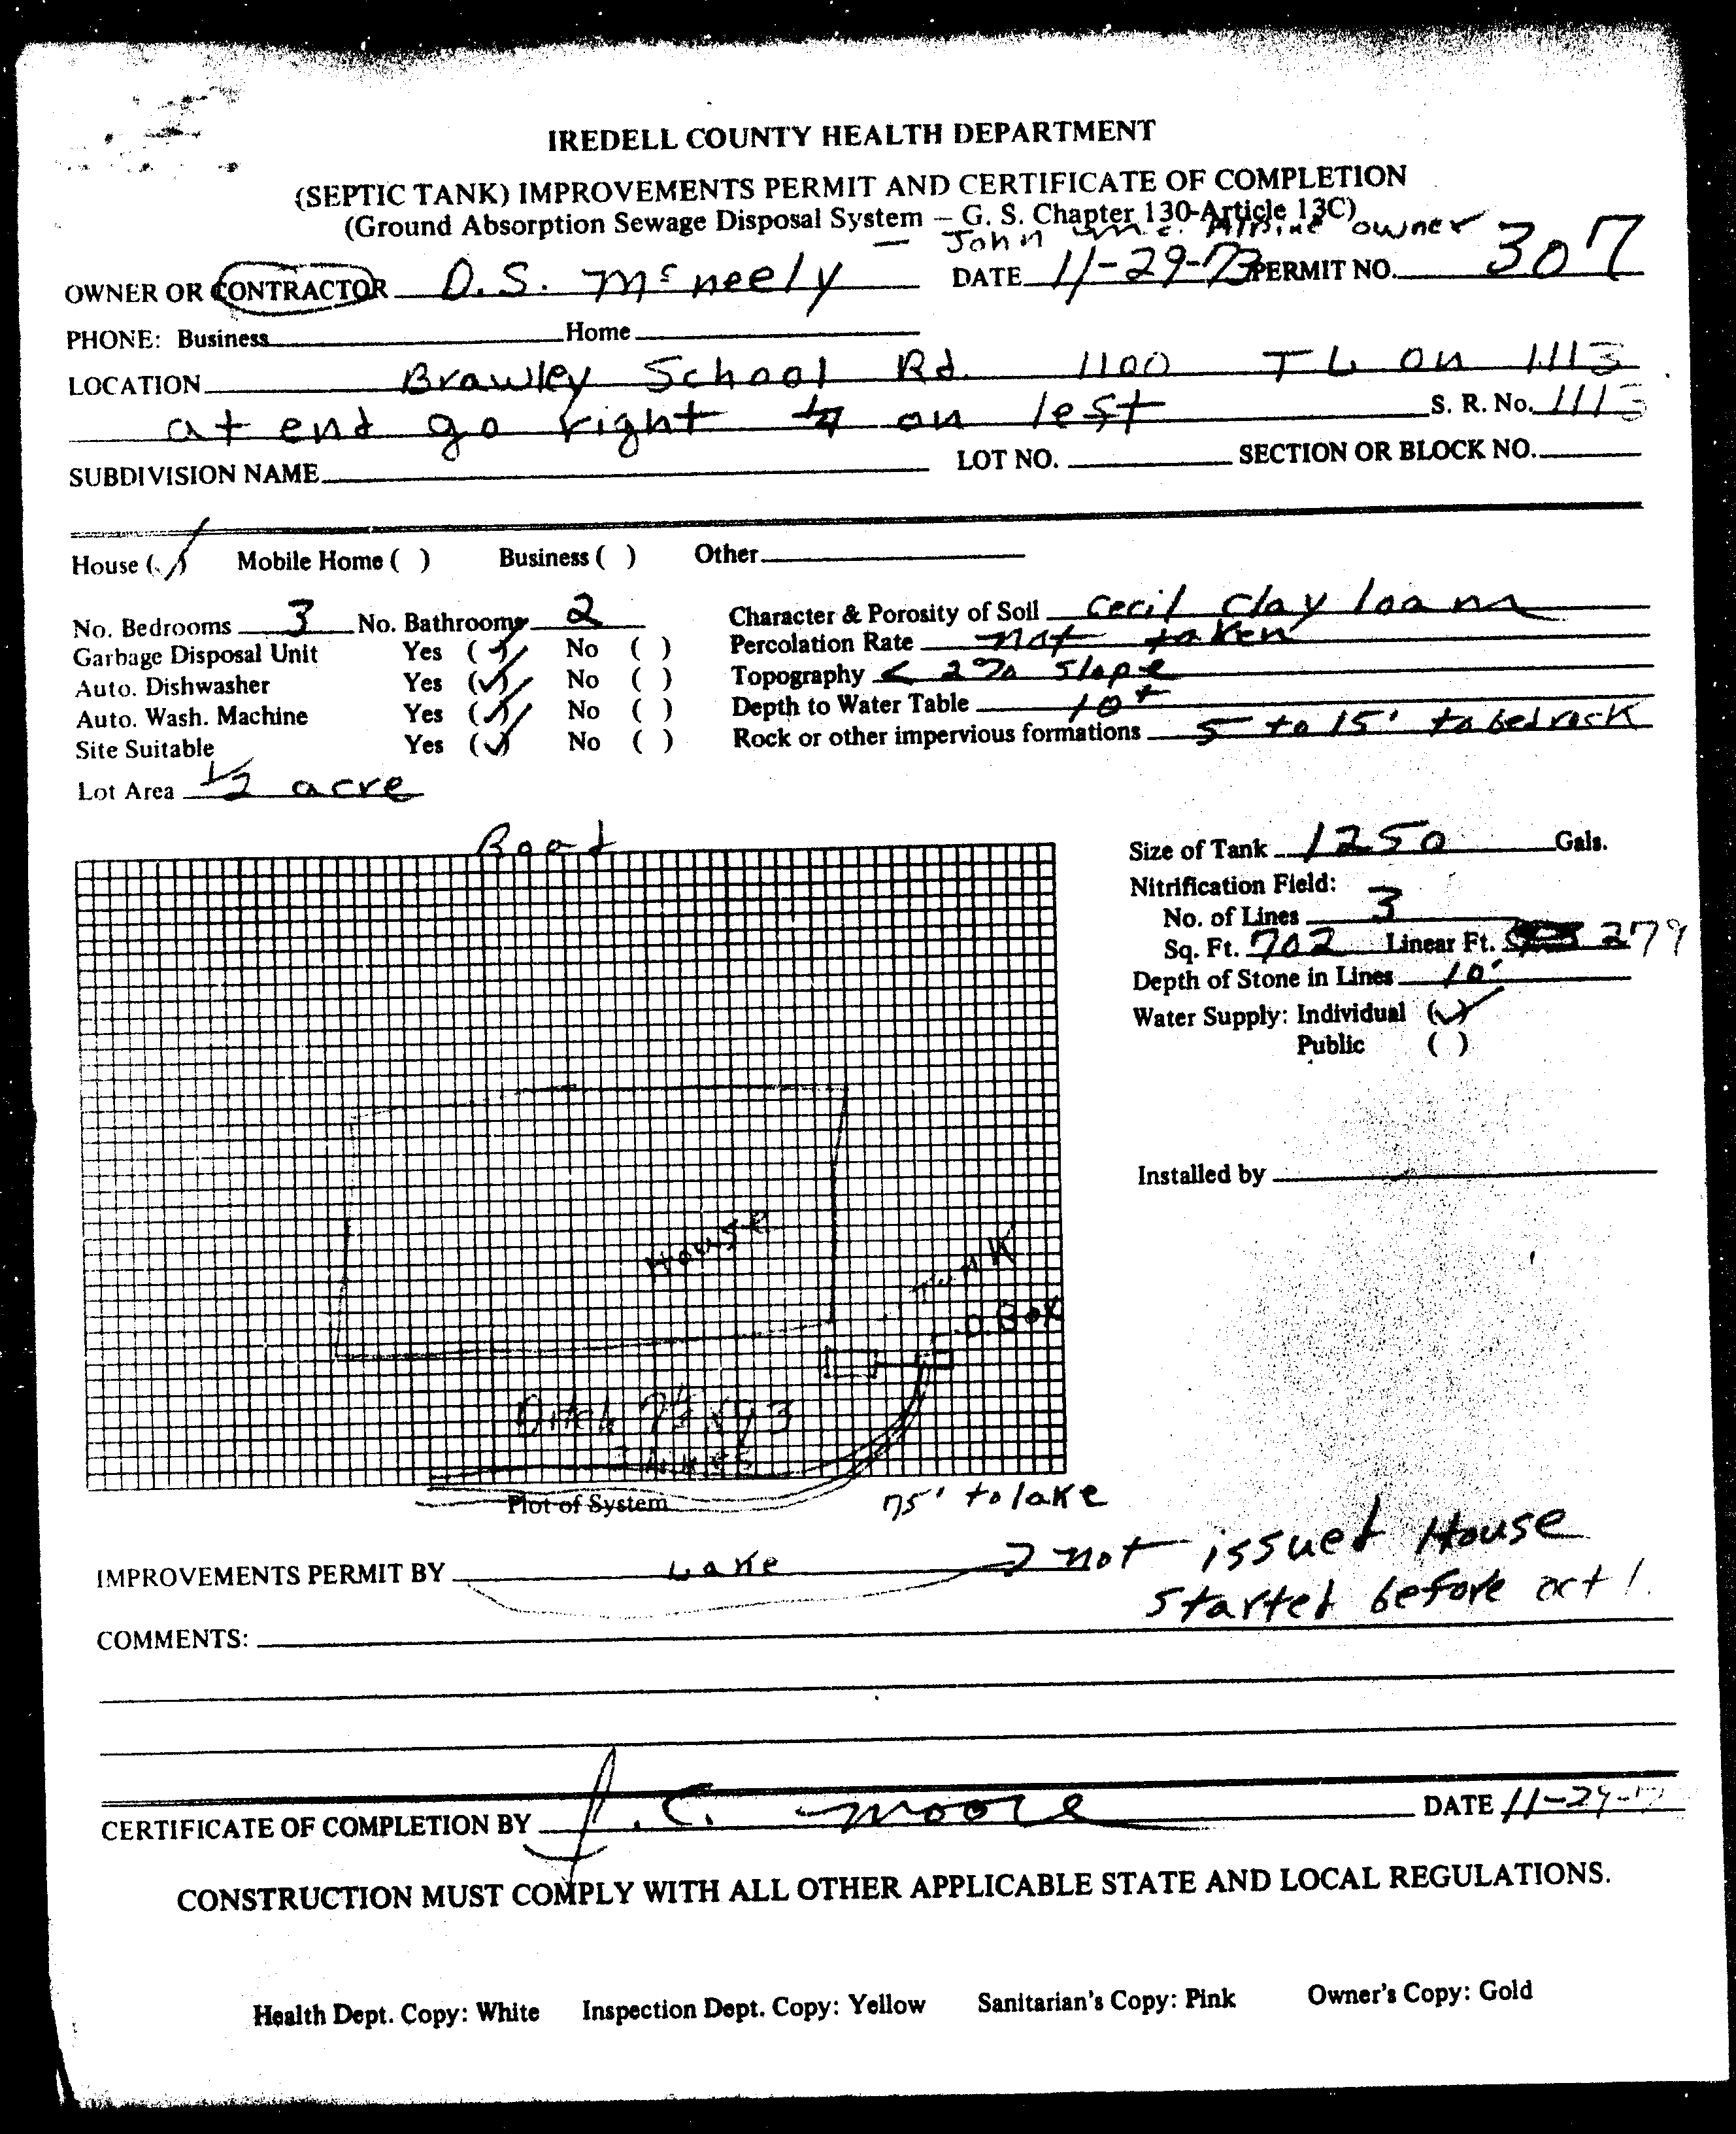 IREDELL COUNTY HEALTH DEPARTMENT
(SEPTIC TANK) IMPROVEMENTS PERMIT AND CERTIFICATE OF COMPLETION
(Ground Absorption Sewage Disposal System – G. S. Chapter 130-Article 13C)
– John owner
OWNER OR CONTRACTOR D.S. McNeely DATE 11-29-73 PERMIT NO. 307
PHONE: Business Home
LOCATION Brawley School Rd. 1100 TL on 1113
at end go right 1/4 on left S. R. No. 1113
SUBDIVISION NAME LOT NO. SECTION OR BLOCK NO.
House (✓) Mobile Home ( ) Business ( ) Other
No. Bedrooms 3 No. Bathrooms 2 Character & Porosity of Soil Cecil clay loam
Garbage Disposal Unit Yes (✓) No ( ) Percolation Rate not taken
Auto. Dishwasher Yes (✓) No ( ) Topography < 2% slope
Auto. Wash. Machine Yes (✓) No ( ) Depth to Water Table 10+
Site Suitable Yes (✓) No ( ) Rock or other impervious formations 5 to 15' to bedrock
Lot Area 1/2 acre
Road
Size of Tank 1250 Gals.
Nitrification Field:
No. of Lines 3
Sq. Ft. 702 Linear Ft. 279
Depth of Stone in Lines 10"
Water Supply: Individual (✓)
Public ( )
Installed by
House
Tank
D. Box
Ditch 3
Lines
Plot of System 75' to lake
IMPROVEMENTS PERMIT BY Lake not issued House
started before oct 1.
COMMENTS:
CERTIFICATE OF COMPLETION BY J. C. Moore DATE 11-29-
CONSTRUCTION MUST COMPLY WITH ALL OTHER APPLICABLE STATE AND LOCAL REGULATIONS.
Health Dept. Copy: White Inspection Dept. Copy: Yellow Sanitarian's Copy: Pink Owner's Copy: Gold